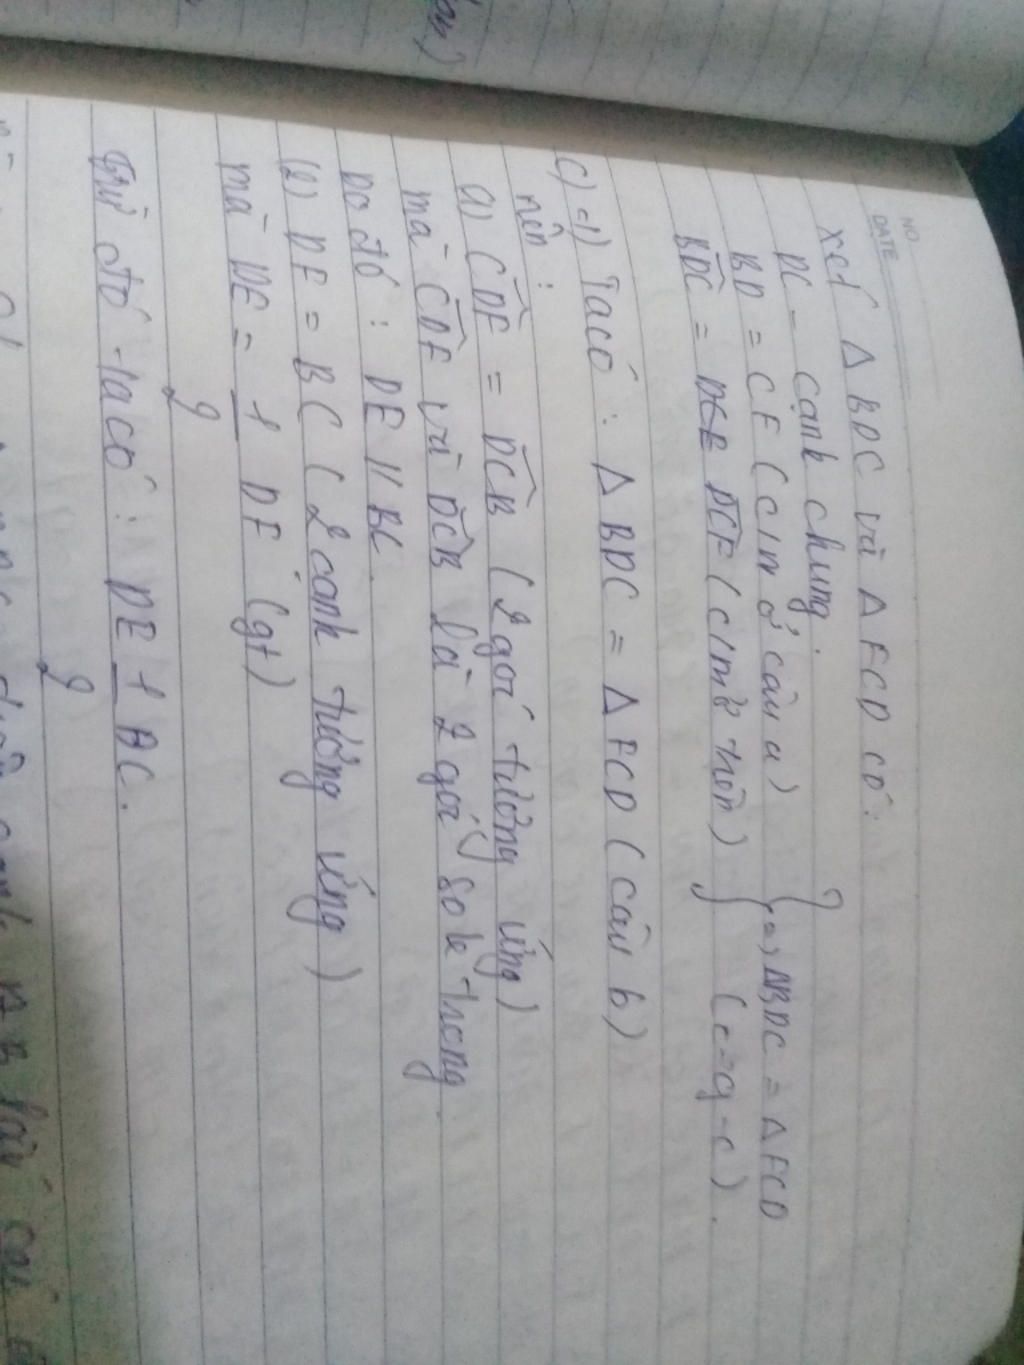 NO.
DATE
Xét Δ BDC và Δ FCD có:
DC - cạnh chung.
BD = CF (c/m ở câu a)
} => ΔBDC = ΔFCD
BDC = DCF (c/m trên)
(c-g-c).
c) 1) Ta có: Δ BDC = Δ FCD (câu b)
nên:
a) CDF = DCB (2 góc tương ứng)
mà CDF và DCB là 2 góc so le trong.
Do đó: DE // BC.
(2) DF = BC (2 cạnh tương ứng)
mà DE = 1/2 DF (gt)
đó ta có: DE 1/2 BC.